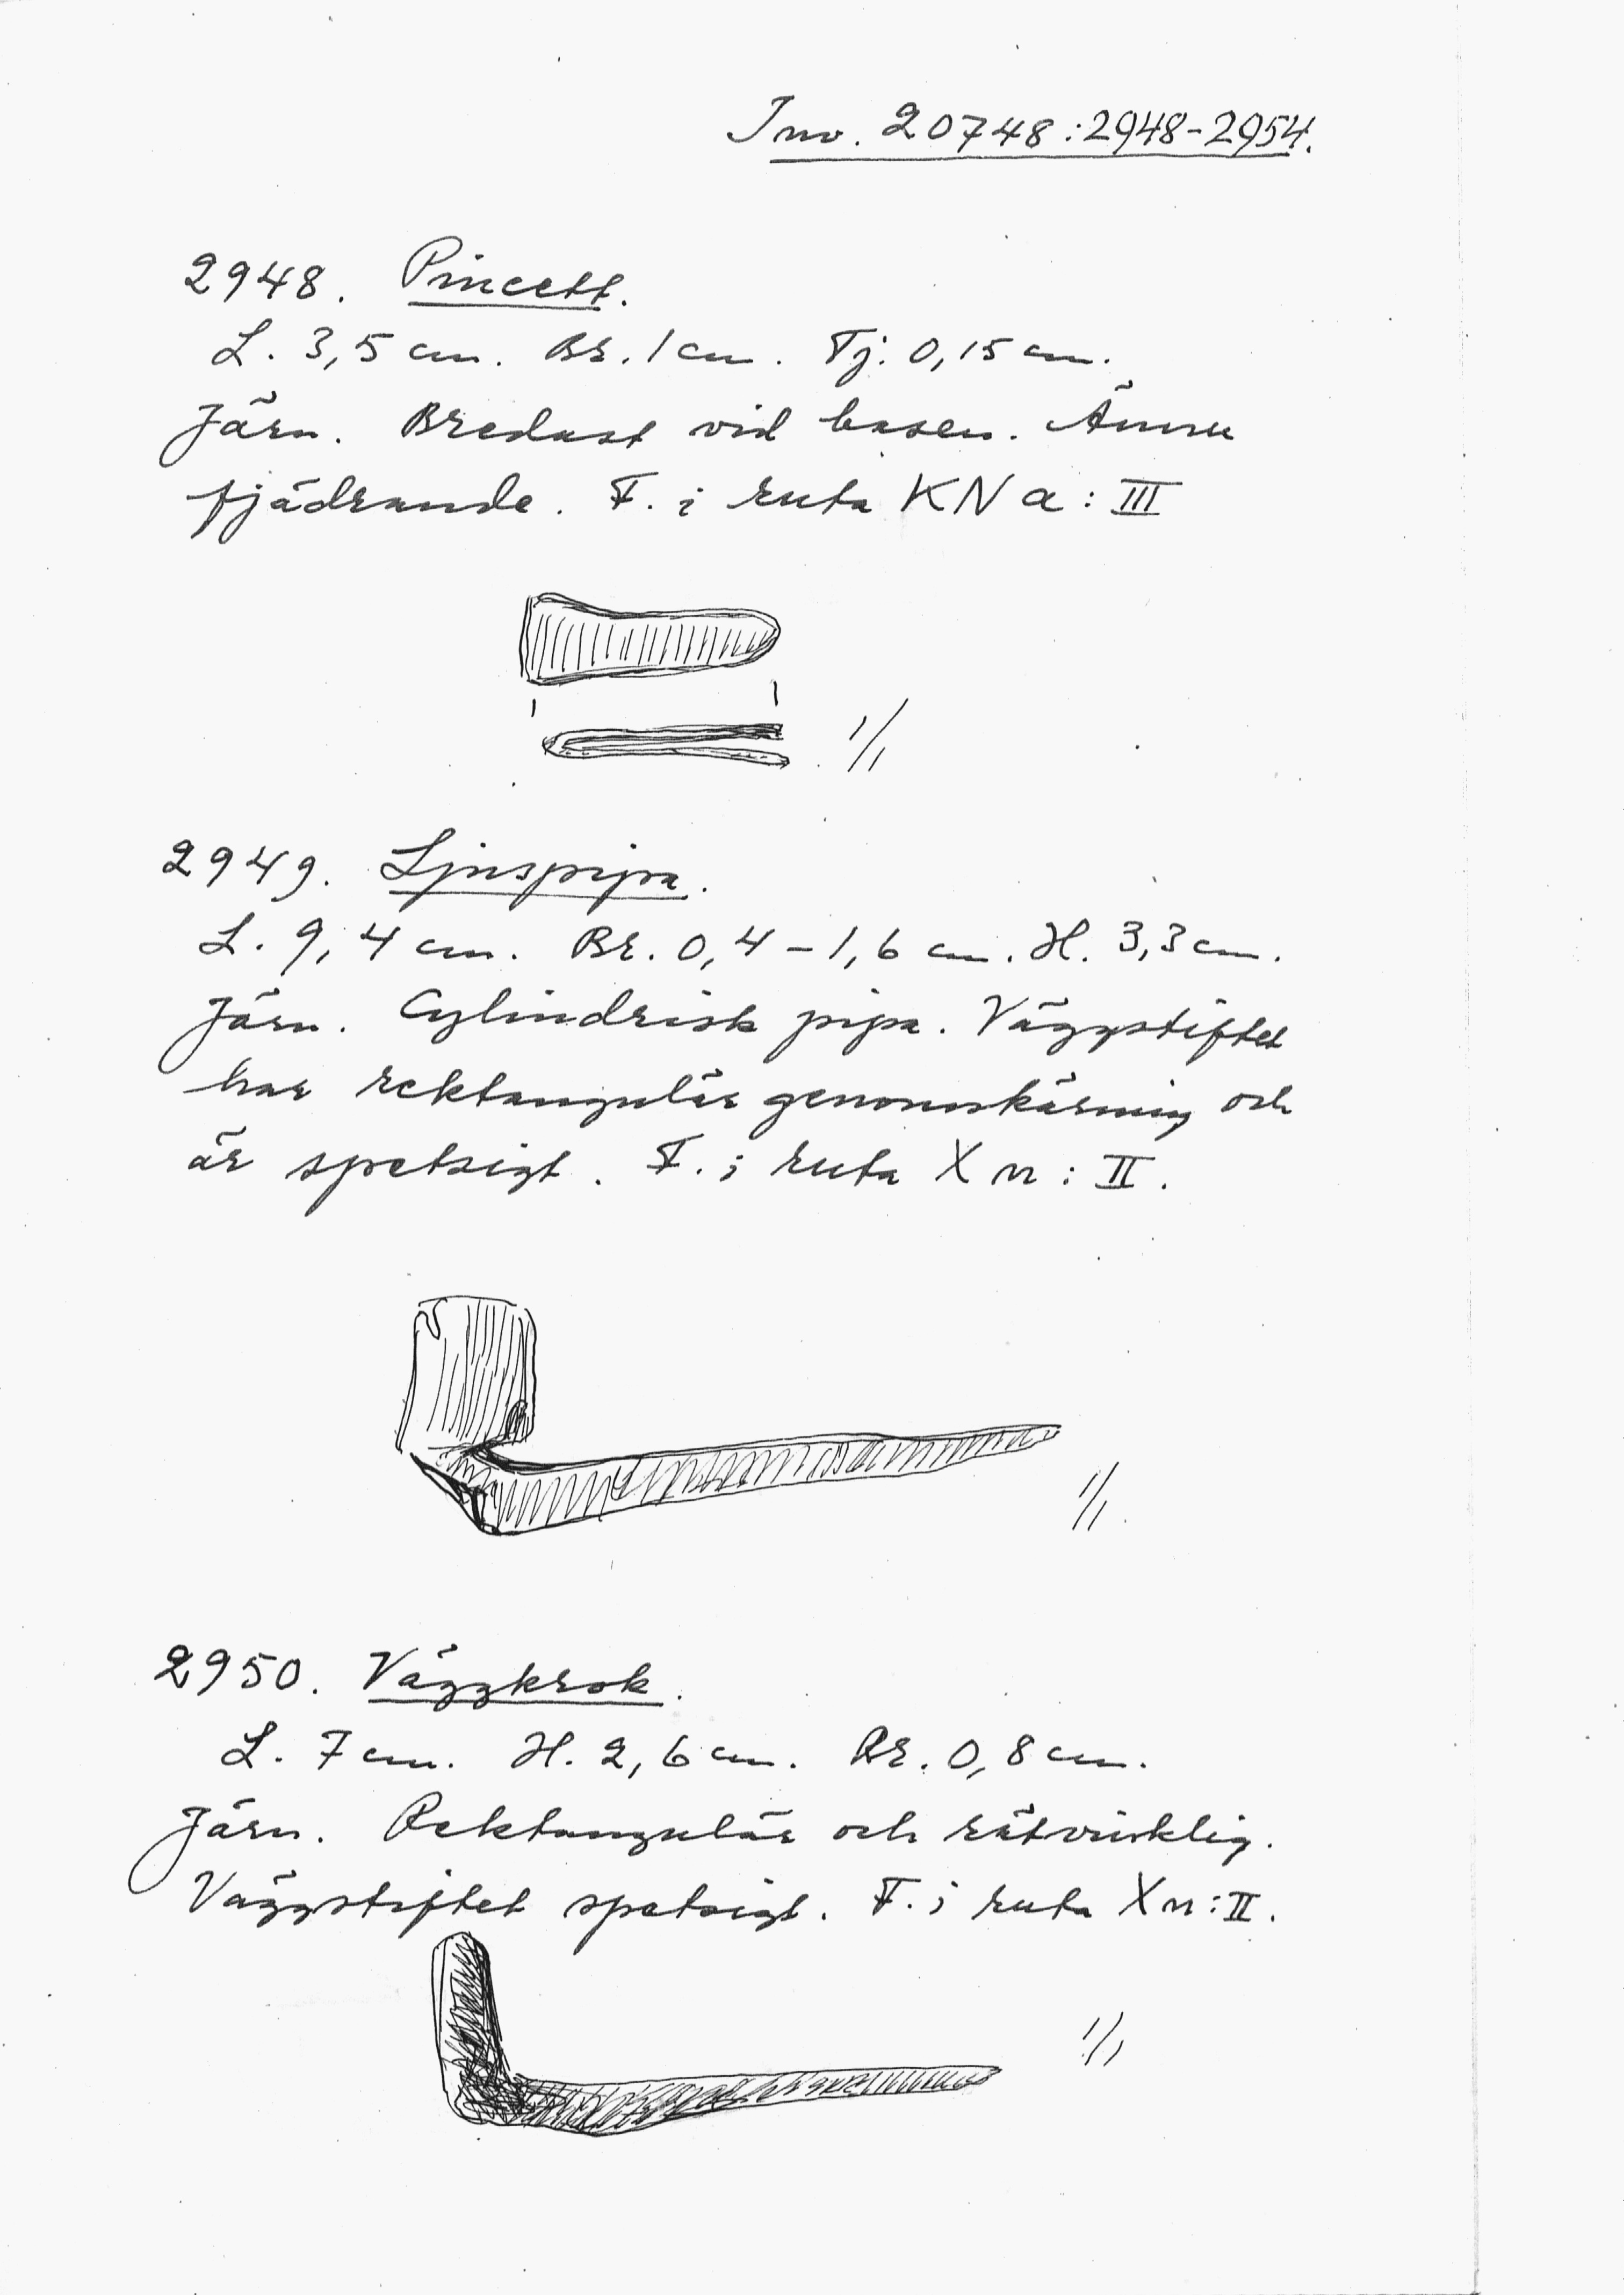 Inv. 20748:2948-2954.
2948. Pincett.
L. 3,5 cm. Br. 1 cm. Tj. 0,15 cm.
Järn. Bredast vid basen. Ännu
fjädrande. F. i ruta KN a: III
1/1
2949. Ljuspipa.
L. 9,4 cm. Br. 0,4-1,6 cm. H. 3,3 cm.
Järn. Cylindrisk pipa. Väggstiftet
har rektangulär genomskärning och
är spetsigt. F. i ruta X n: II.
1/1.
2950. Väggkrok.
L. 7 cm. H. 2,6 cm. Br. 0,8 cm.
Järn. Rektangulär och rätvinklig.
Väggstiftet spetsigt. F. i ruta X n: II.
1/1